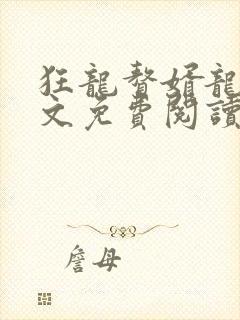 狂龍贅婿龍
文免費閱讀
詹母